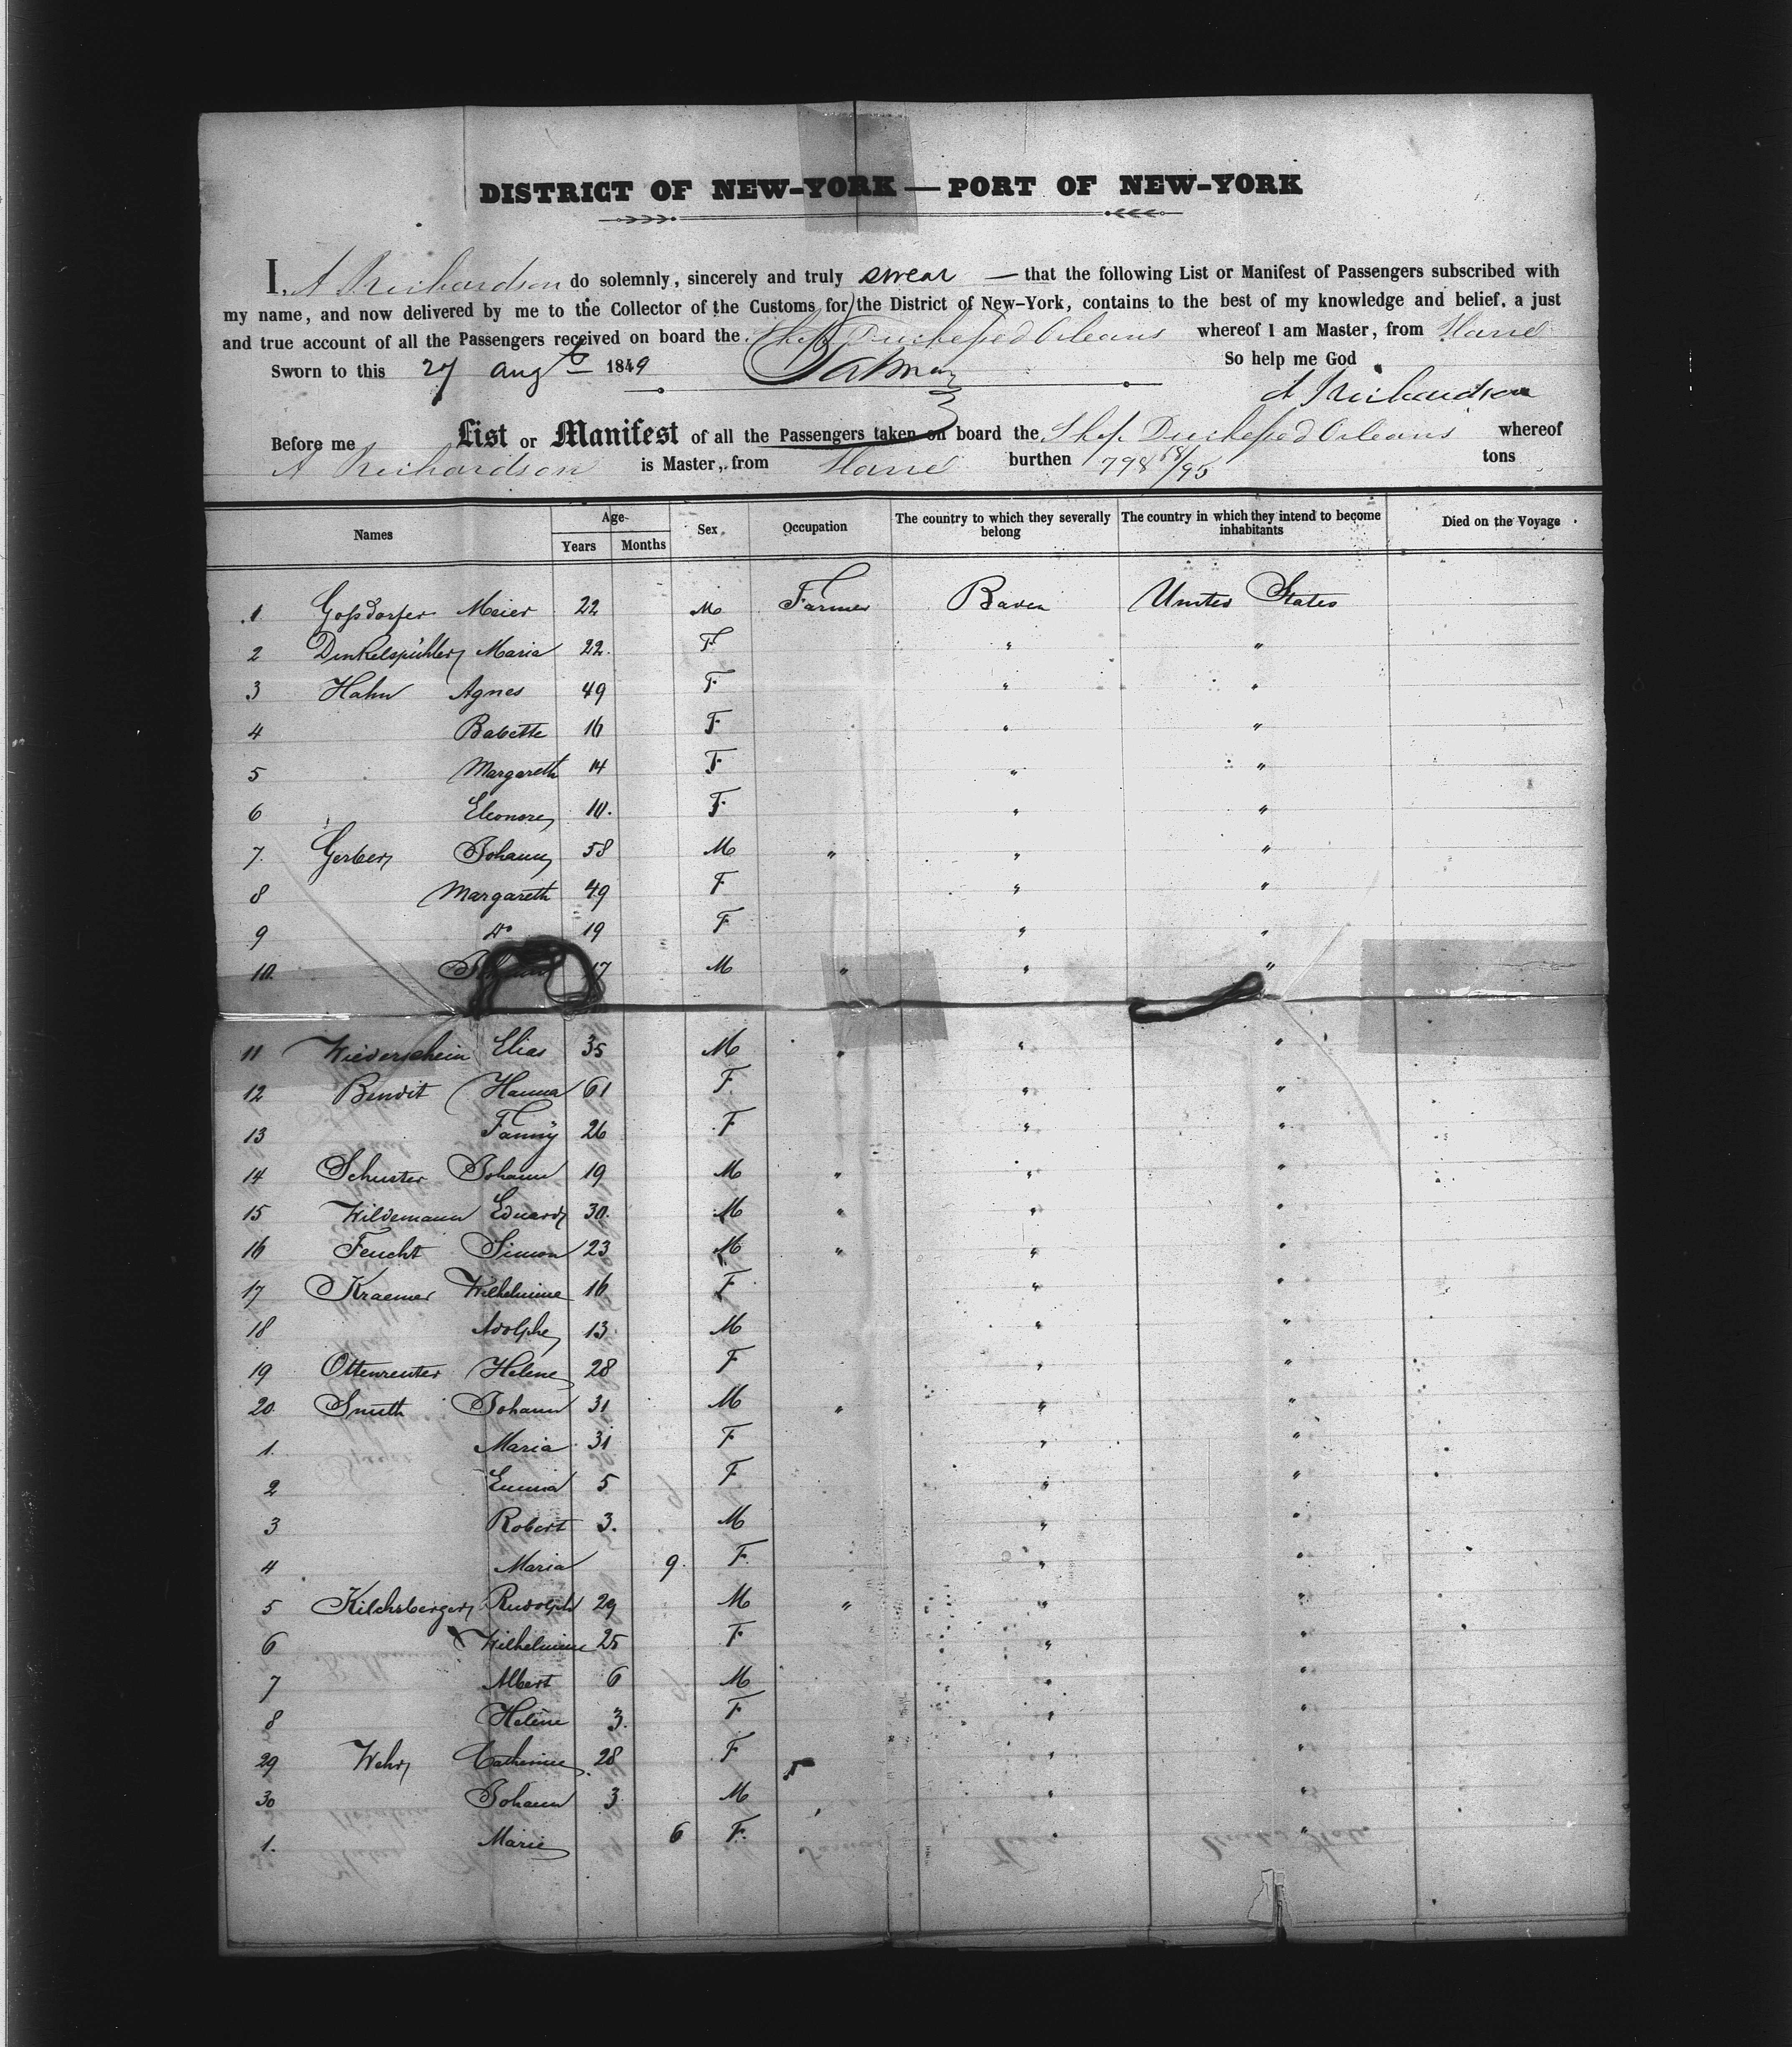 DISTRICT OF NEW-YORK — PORT OF NEW-YORK
I, A Richardson do solemnly, sincerely and truly swear — that the following List or Manifest of Passengers subscribed with
my name, and now delivered by me to the Collector of the Customs for the District of New-York, contains to the best of my knowledge and belief, a just
and true account of all the Passengers received on board the Ship Duchesse d Orleans whereof I am Master, from Havre
Sworn to this 27 Augt 1849 So help me God
A Richardson
Before me List or Manifest of all the Passengers taken on board the Ship Duchesse d Orleans whereof
A Richardson is Master, from Havre burthen 798 68/95 tons
Names Age Years Months Sex Occupation The country to which they severally belong The country in which they intend to become inhabitants Died on the Voyage
1 Goßdorfer Meier 22 M Farmer Baden United States
2 Dinkelspühler Maria 22 F " "
3 Hahn Agnes 49 F " "
4 Babette 16 F " "
5 Margareth 14 F " "
6 Eleonore 10 F " "
7 Gerber Johann 58 M " " "
8 Margareth 49 F " "
9 do 19 F " "
10 Johann 17 M " " "
11 Wiederschein Elias 35 M " " "
12 Bendit Hanna 61 F " "
13 Fanny 26 F " "
14 Schuster Johann 19 M " " "
15 Wildemann Eduard 30 M " " "
16 Feucht Simon 23 M " " "
17 Kraemer Wilhelmine 16 F " "
18 Adolphe 13 M " "
19 Ottenreuter Helene 28 F " "
20 Smith Johann 31 M " " "
1 Maria 31 F " "
2 Emma 5 F " "
3 Robert 3 M " "
4 Maria 9 F " "
5 Kilchsberger Rudolph 29 M " " "
6 Wilhelmine 25 F " "
7 Albert 6 M " "
8 Helène 3 F " "
29 Wehr Catherine 28 F " "
30 Johann 3 M " "
1 Marie 6 F " "